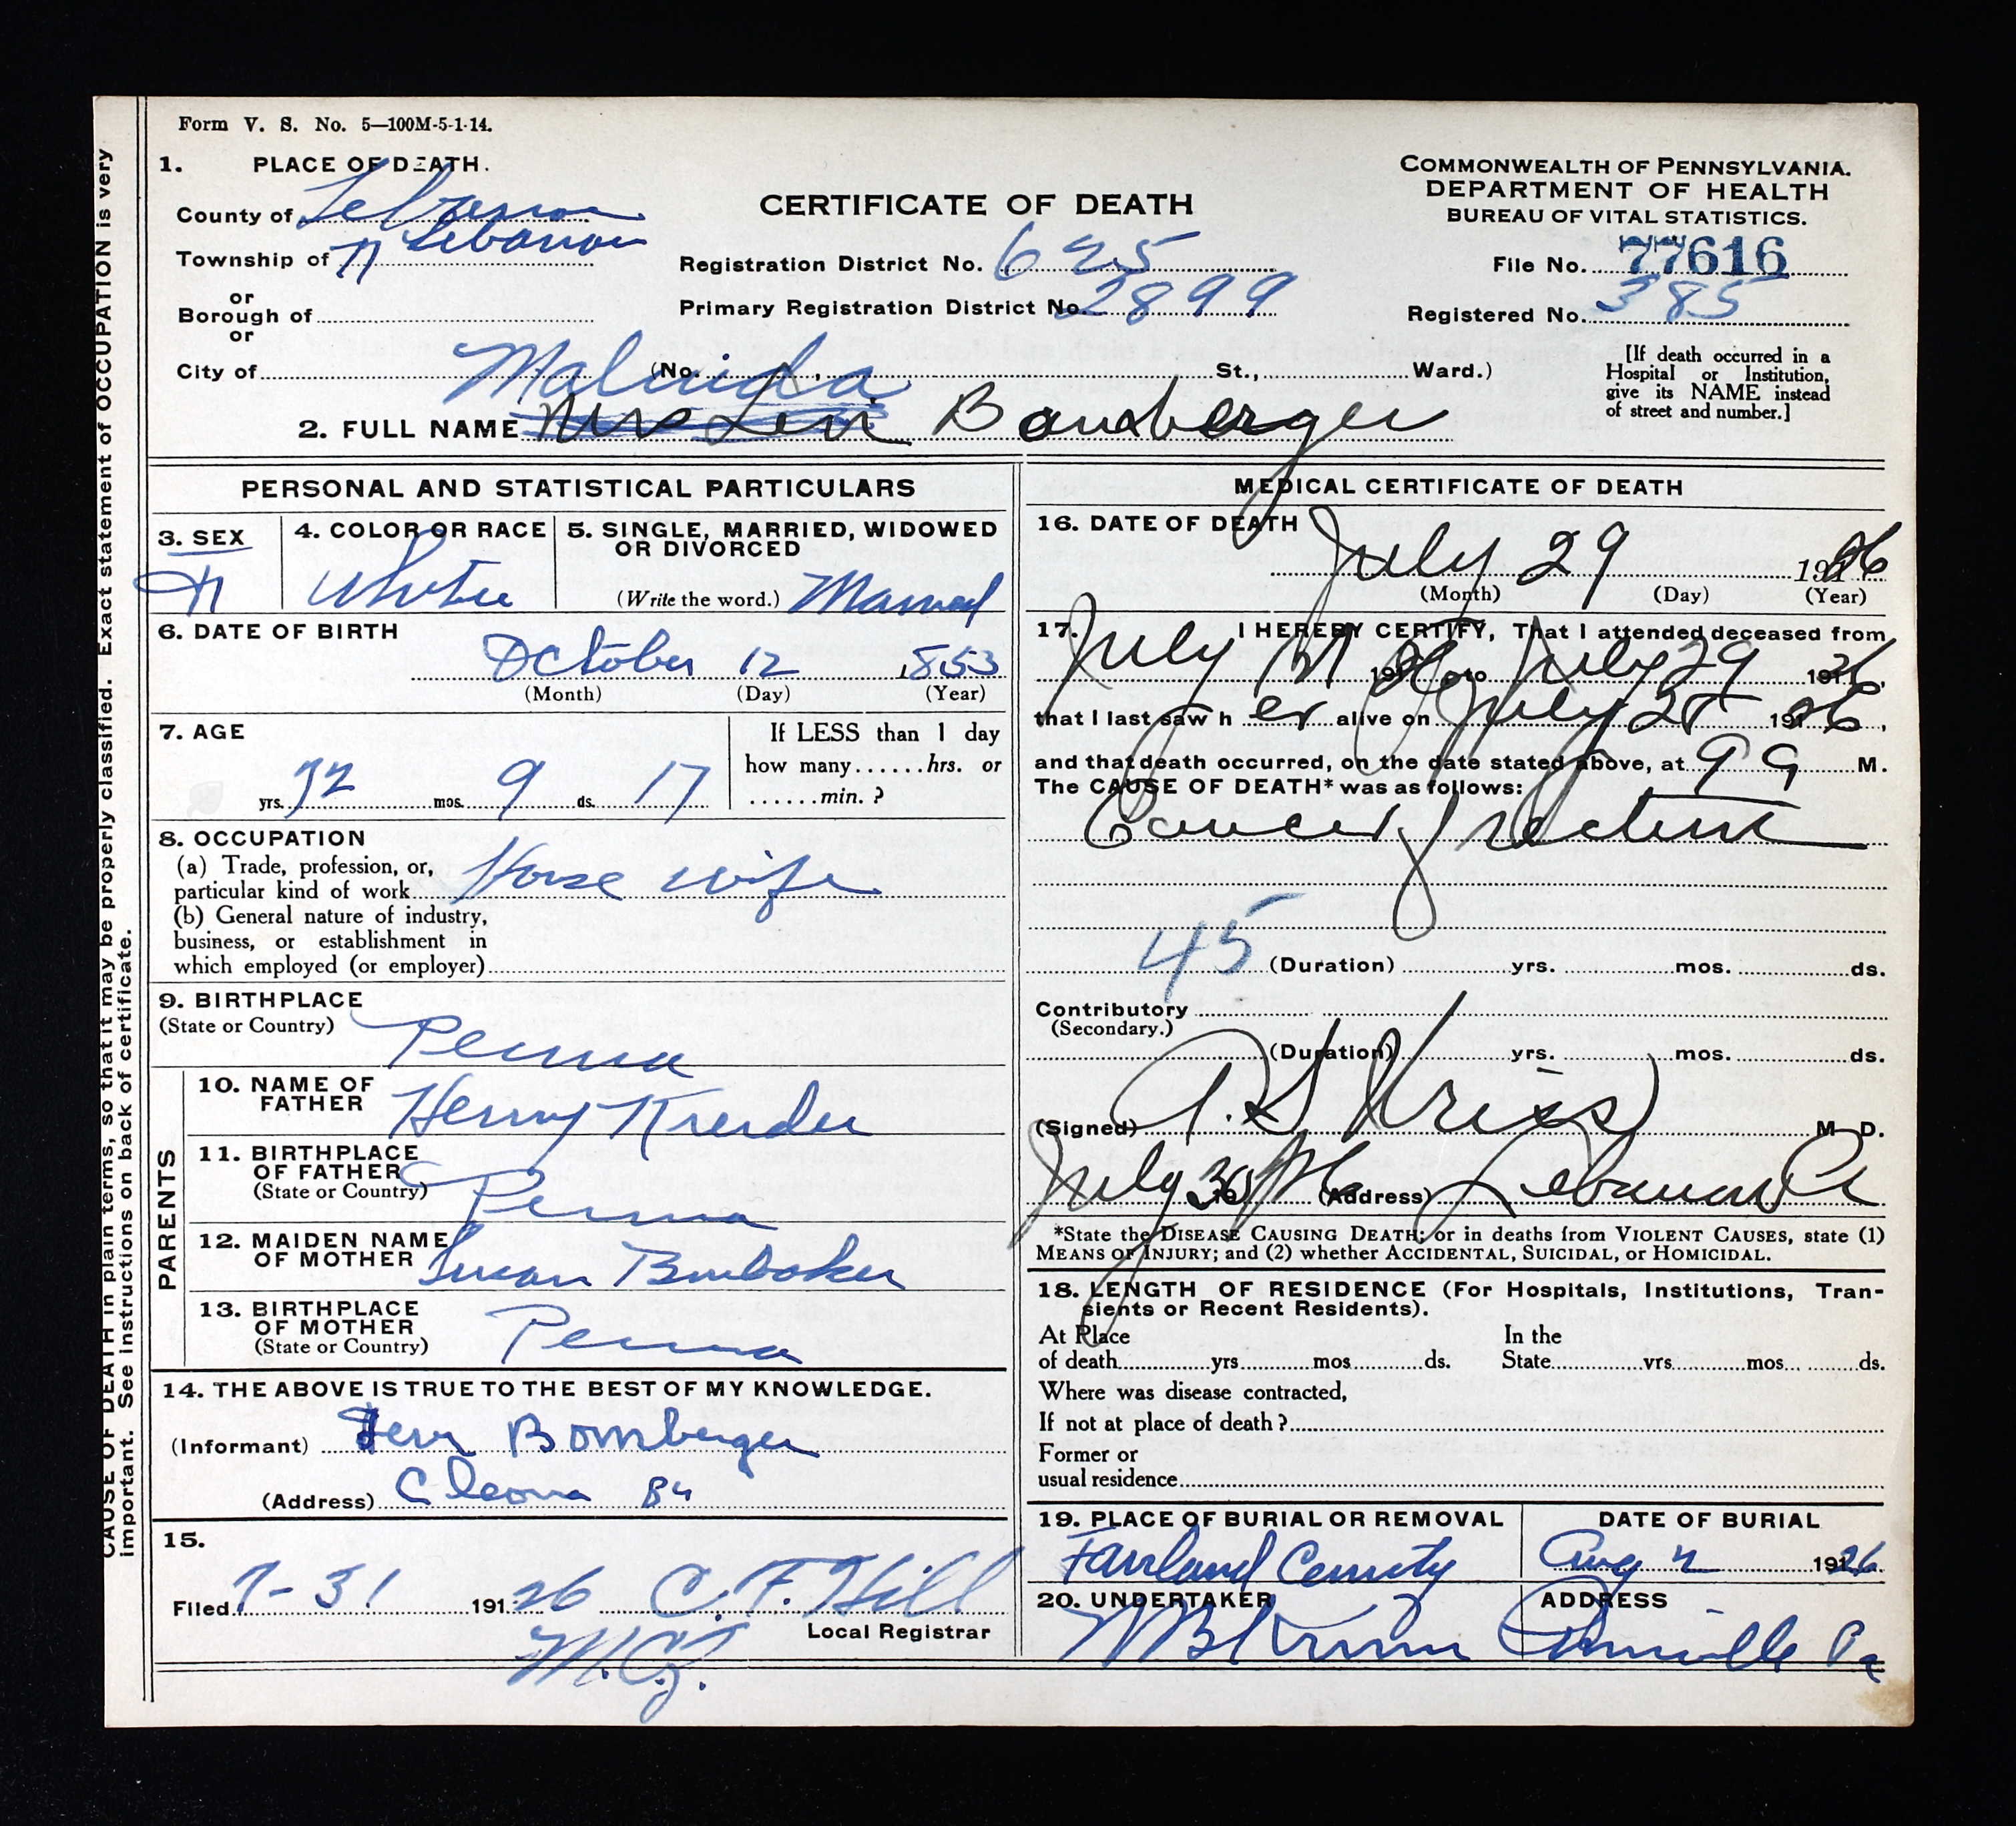 Form V. S. No. 5—100M-5-1-14.
1. PLACE OF DEATH.
County of Lebanon
Township of N Lebanon
or
Borough of
or
City of (No. , St., Ward.)
CERTIFICATE OF DEATH
Registration District No. 625
Primary Registration District No. 2899
COMMONWEALTH OF PENNSYLVANIA.
DEPARTMENT OF HEALTH
BUREAU OF VITAL STATISTICS.
File No. 77616
Registered No. 385
[If death occurred in a
Hospital or Institution,
give its NAME instead
of street and number.]
Malinda
2. FULL NAME Mrs Levi Bomberger
PERSONAL AND STATISTICAL PARTICULARS
3. SEX
4. COLOR OR RACE White
5. SINGLE, MARRIED, WIDOWED
OR DIVORCED
(Write the word.) Married
6. DATE OF BIRTH
October 12 1853
(Month) (Day) (Year)
7. AGE
72 yrs. 9 mos. 17 ds.
If LESS than 1 day
how many......hrs. or
......min. ?
8. OCCUPATION
(a) Trade, profession, or,
particular kind of work House wife
(b) General nature of industry,
business, or establishment in
which employed (or employer)
9. BIRTHPLACE
(State or Country) Penna
PARENTS
10. NAME OF
FATHER Henry Kreider
11. BIRTHPLACE
OF FATHER
(State or Country) Penna
12. MAIDEN NAME
OF MOTHER Susan Brubaker
13. BIRTHPLACE
OF MOTHER
(State or Country) Penna
14. THE ABOVE IS TRUE TO THE BEST OF MY KNOWLEDGE.
(Informant) Bomberger
(Address) Cleona
15.
Filed 7-31 191 26 C. F. Hill
Local Registrar
MEDICAL CERTIFICATE OF DEATH
16. DATE OF DEATH
July 29 1926
(Month) (Day) (Year)
17. I HEREBY CERTIFY, That I attended deceased from
July 191 to July 29 1926,
that I last saw h er alive on July 28 1926,
and that death occurred, on the date stated above, at 9 a M.
The CAUSE OF DEATH* was as follows:
Cancer of rectum
45
(Duration) yrs. mos. ds.
Contributory
(Secondary.)
(Duration) yrs. mos. ds.
(Signed) M D.
July 30 26 (Address) Lebanon Pa
*State the DISEASE CAUSING DEATH; or in deaths from VIOLENT CAUSES, state (1)
MEANS OF INJURY; and (2) whether ACCIDENTAL, SUICIDAL, or HOMICIDAL.
18. LENGTH OF RESIDENCE (For Hospitals, Institutions, Tran-
sients or Recent Residents).
At Place In the
of death yrs mos ds. State yrs mos ds.
Where was disease contracted,
If not at place of death?
Former or
usual residence
19. PLACE OF BURIAL OR REMOVAL
Fairland Cemety
DATE OF BURIAL
Aug 2 1926
20. UNDERTAKER
ADDRESS
Annville Pa
CAUSE OF DEATH in plain terms, so that it may be properly classified. Exact statement of OCCUPATION is very
important. See instructions on back of certificate.